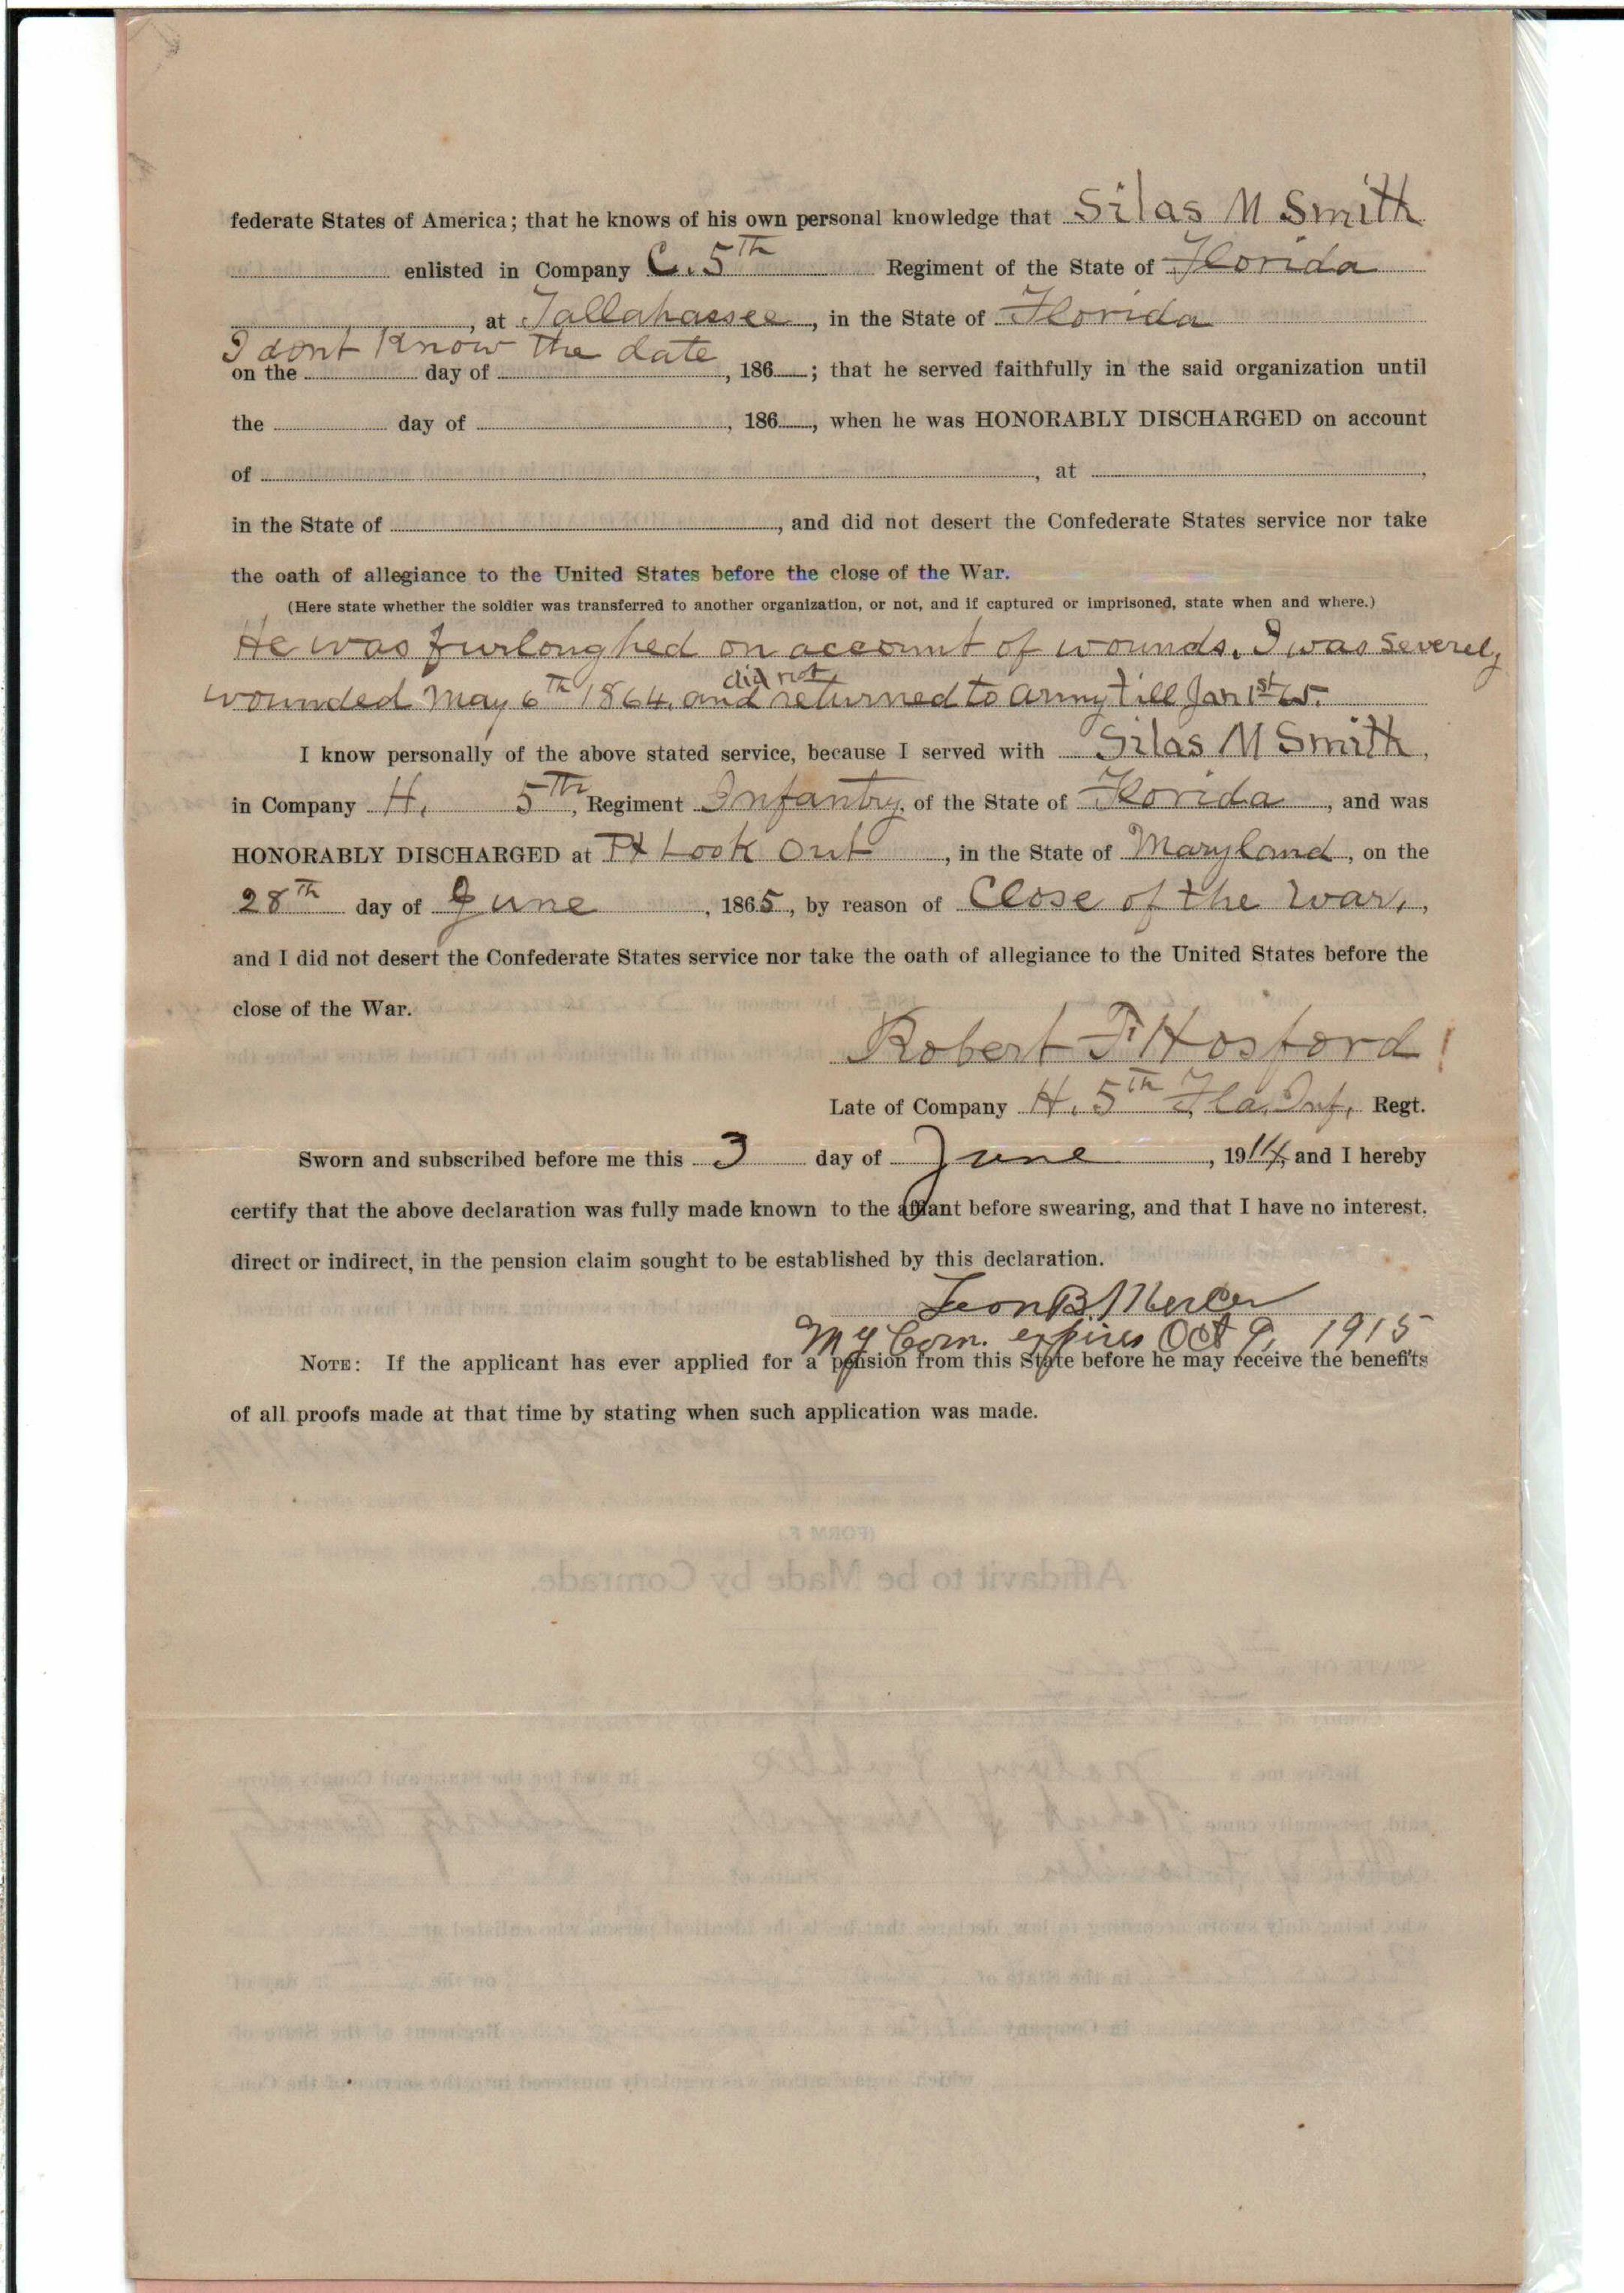 federate States of America; that he knows of his own personal knowledge that Silas M Smith
enlisted in Company C. 5th Regiment of the State of Florida
, at Tallahassee, in the State of Florida
I dont Know the date
on the day of , 186 ; that he served faithfully in the said organization until
the day of , 186 , when he was HONORABLY DISCHARGED on account
of , at ,
in the State of , and did not desert the Confederate States service nor take
the oath of allegiance to the United States before the close of the War.
(Here state whether the soldier was transferred to another organization, or not, and if captured or imprisoned, state when and where.)
He was furloughed on account of wounds. I was severely
did not
wounded May 6th 1864. and returned to army till Jan 1st 65.
I know personally of the above stated service, because I served with Silas M Smith,
in Company H, 5th, Regiment Infantry, of the State of Florida, and was
HONORABLY DISCHARGED at Pt Look Out, in the State of Maryland, on the
28th day of June, 1865, by reason of Close of the War.,
and I did not desert the Confederate States service nor take the oath of allegiance to the United States before the
close of the War.
Robert F Hosford
Late of Company H. 5th Fla. Inf, Regt.
Sworn and subscribed before me this 3 day of June, 1914, and I hereby
certify that the above declaration was fully made known to the affiant before swearing, and that I have no interest.
direct or indirect, in the pension claim sought to be established by this declaration.
Leon B. Mercer
My Com. expires Oct 9, 1915
NOTE: If the applicant has ever applied for a pension from this State before he may receive the benefits
of all proofs made at that time by stating when such application was made.